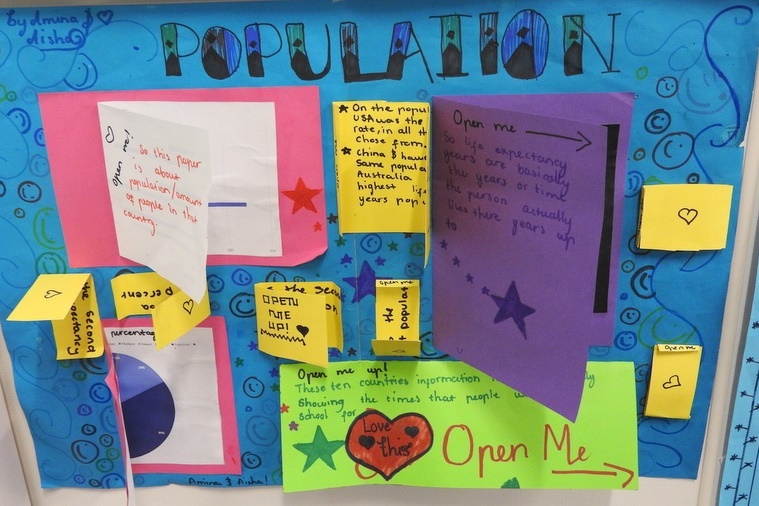 by Amina &
Aisha
POPULATION
open me!
So this paper
is about
population/amount
of people in that
country.
On the popul
USA was the
rate, in all th
chose from.
China & hawe
Same popula
Australia
highest life
years pop
Open me
So life expectancy
years are basically
the years or time
the person actually
lies there years up
to
the Second
percent
the Seco
OPEN
ME
UP!
open me
the
t populat
open me
percentag
Open me up!
These ten countries information
Showing the times that people w
school for
Love
this
Open Me
Amina & Aisha!